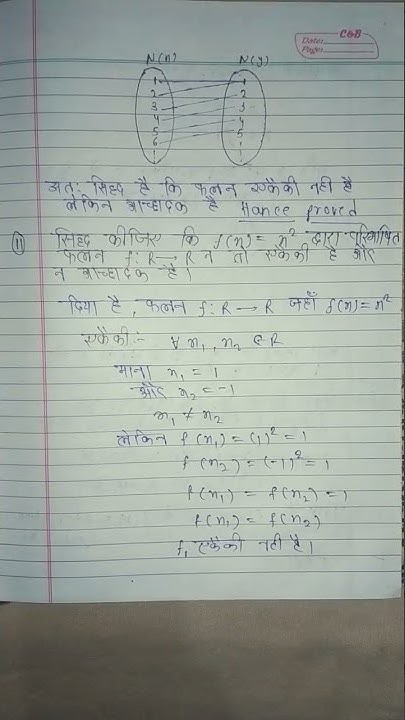 C&B
Date:
Page:
N(n) N(y)
1 1
2 2
3 3
4 4
5 5
6
अत: सिद्ध है कि फलन एकैकी नही है
लेकिन आच्छादक है Hance proved
11 सिद्ध कीजिए कि f(n) = n² द्वारा परिभाषित
फलन f: R → R न तो एकैकी है और
न आच्छादक है।
दिया है, फलन f: R → R जहाँ f(n) = n²
एकैकी:- ∀ n₁, n₂ ∈ R
माना n₁ = 1
और n₂ = -1
n₁ ≠ n₂
लेकिन f(n₁) = (1)² = 1
f(n₂) = (-1)² = 1
f(n₁) = f(n₂) = 1
f(n₁) = f(n₂)
f, एकैकी नही है।